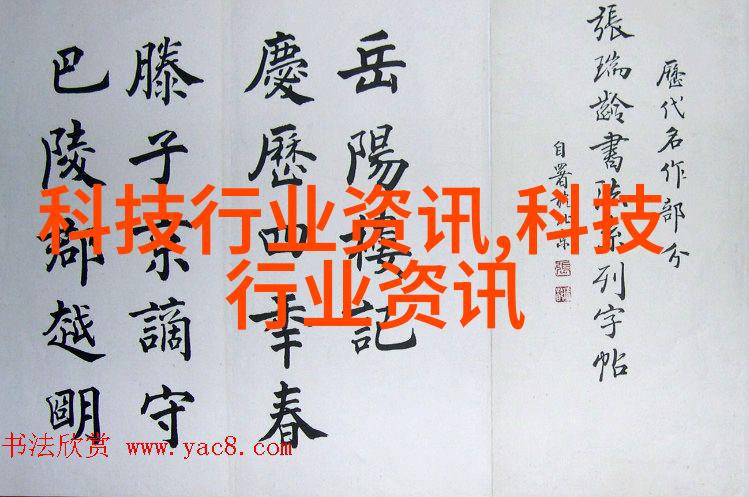 歷代名作部分
張瑞齡書法系列字帖
自署於北京
岳陽樓記
慶歷四年春
滕子京謫守
巴陵郡越朙
科技行业资讯,科技
行业资讯
书法欣赏 www.yac8.com